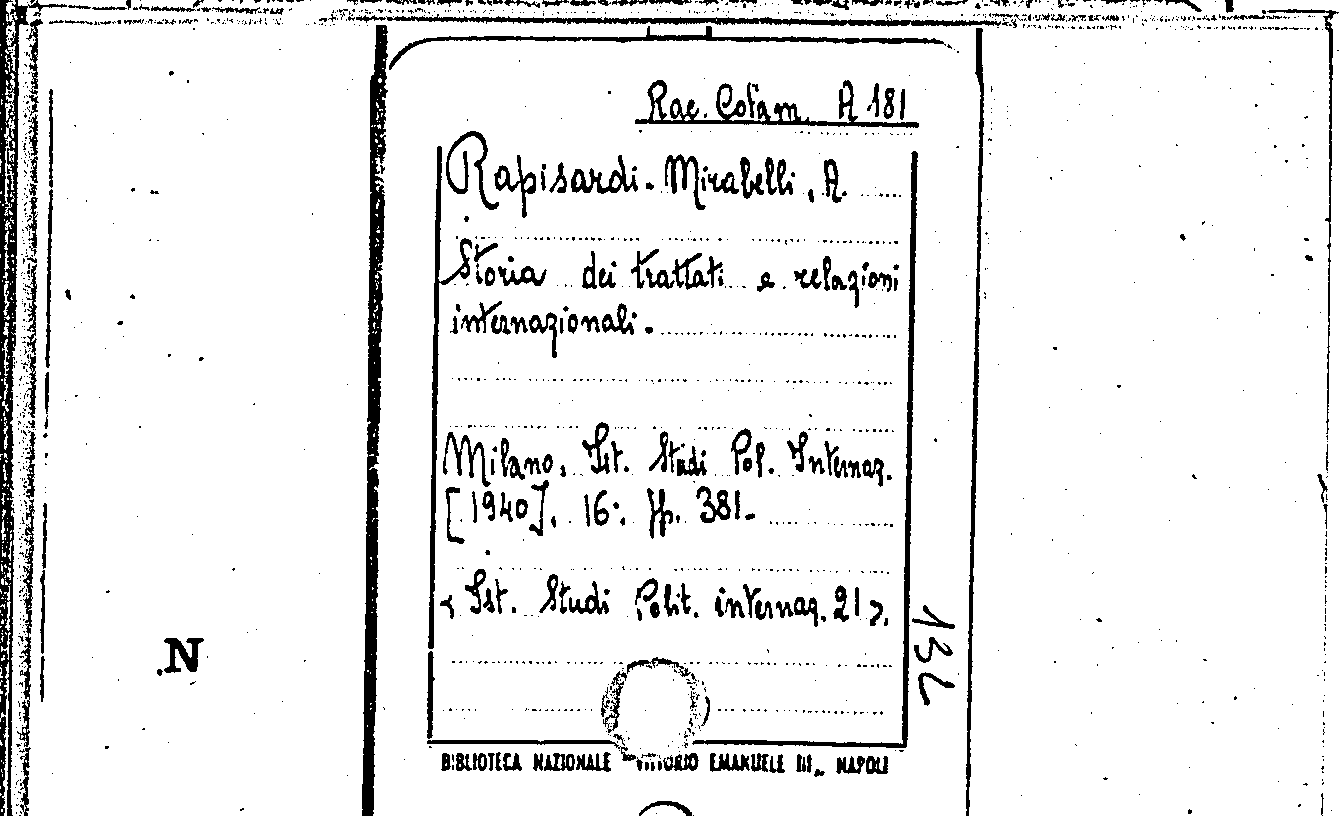 Rac. Cotam. A 181
Rapisardi-Mirabelli, A.
Storia dei trattati e relazioni
internazionali.
Milano, Ist. Studi Pol. Internaz.
[1940]. 16°. pp. 381.
<Ist. Studi Polit. internaz. 21>.
13L
N
BIBLIOTECA NAZIONALE "VITTORIO EMANUELE III„ NAPOLI